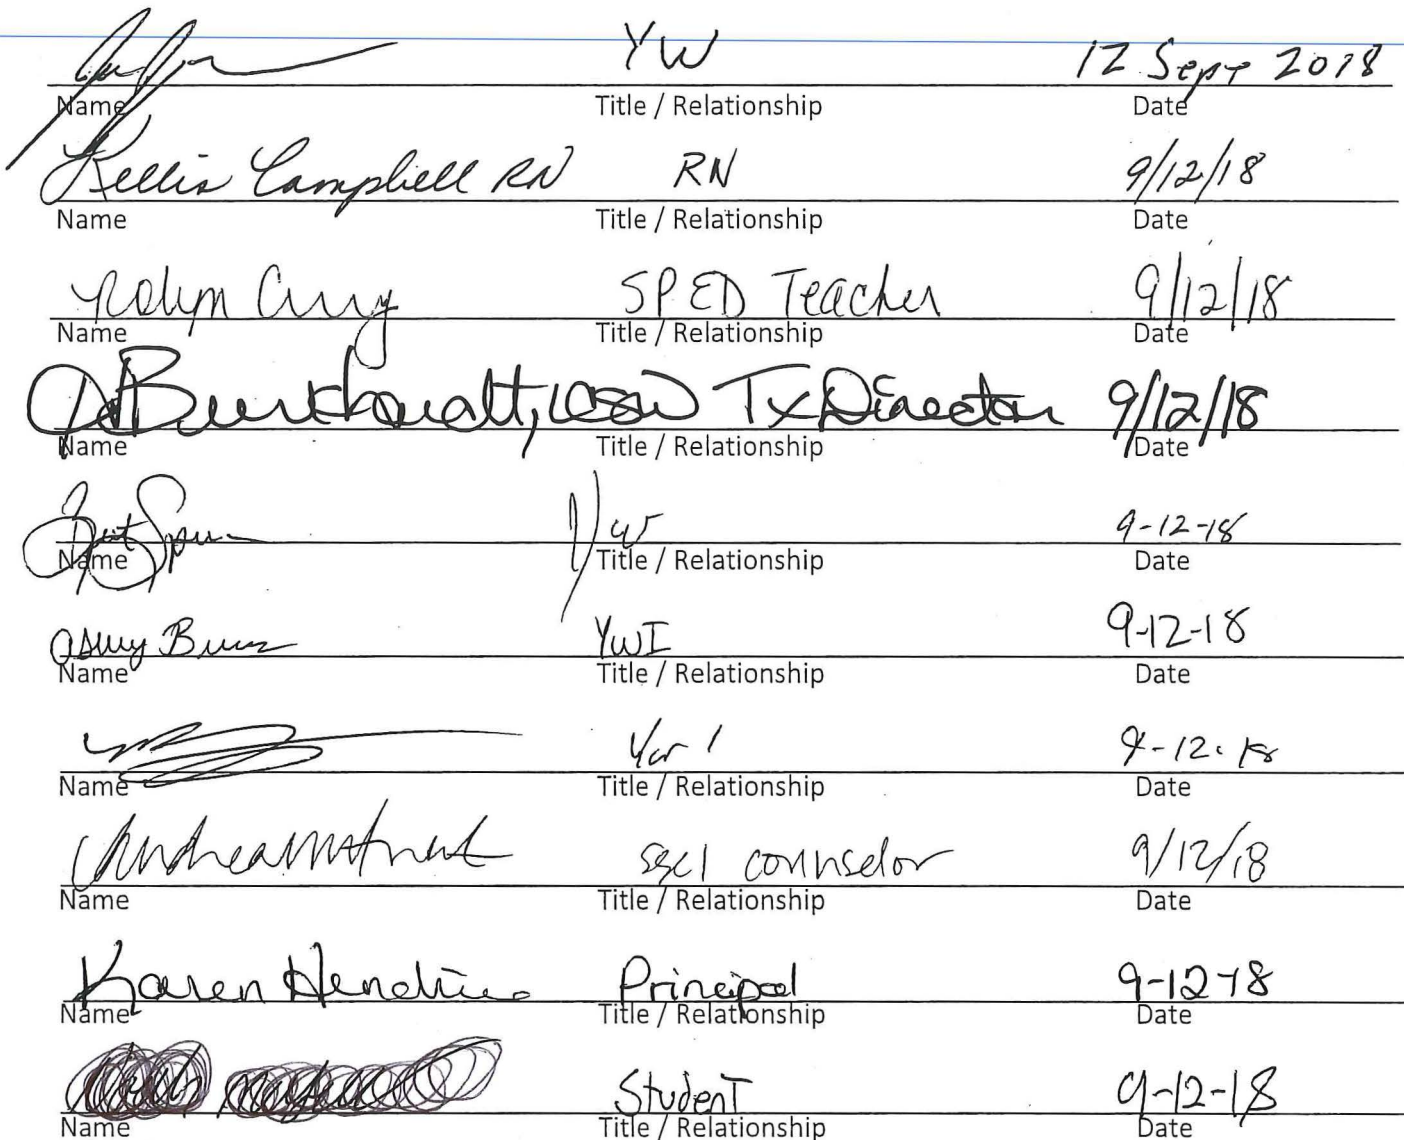 YW 12 Sept 2018
Name Title / Relationship Date
Kellis Campbell RN RN 9/12/18
Name Title / Relationship Date
Robyn Curry SPED Teacher 9/12/18
Name Title / Relationship Date
Burkhardt, LCSW Tx Director 9/12/18
Name Title / Relationship Date
YW 9-12-18
Name Title / Relationship Date
YWI 9-12-18
Name Title / Relationship Date
9-12-18
Name Title / Relationship Date
counselor 9/12/18
Name Title / Relationship Date
Karen Principal 9-12-18
Name Title / Relationship Date
Student 9-12-18
Name Title / Relationship Date